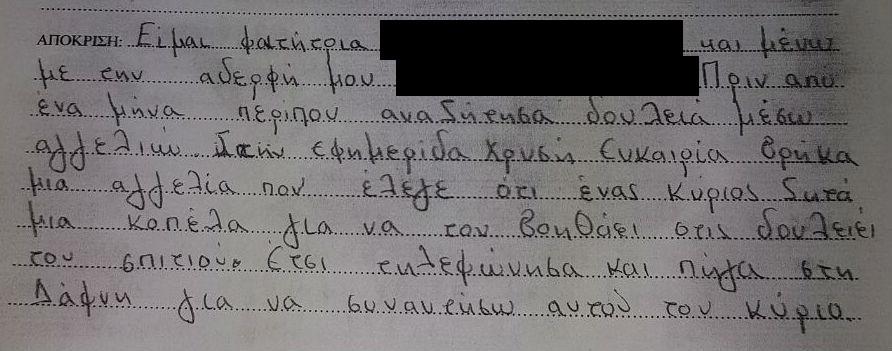 ΑΠΟΚΡΙΣΗ: Είμαι φοιτήτρια και μένω
με την αδερφή μου Πριν από
ένα μήνα περίπου αναζήτησα δουλειά μέσω
αγγελιών στην εφημερίδα Χρυσή Ευκαιρία Βρήκα
μια αγγελία που έλεγε ότι ένας κύριος ζητά
μια κοπέλα για να τον βοηθάει στις δουλειές
του σπιτιού. Έτσι τηλεφώνησα και πήγα στη
Δάφνη για να συναντήσω αυτού του κύριο